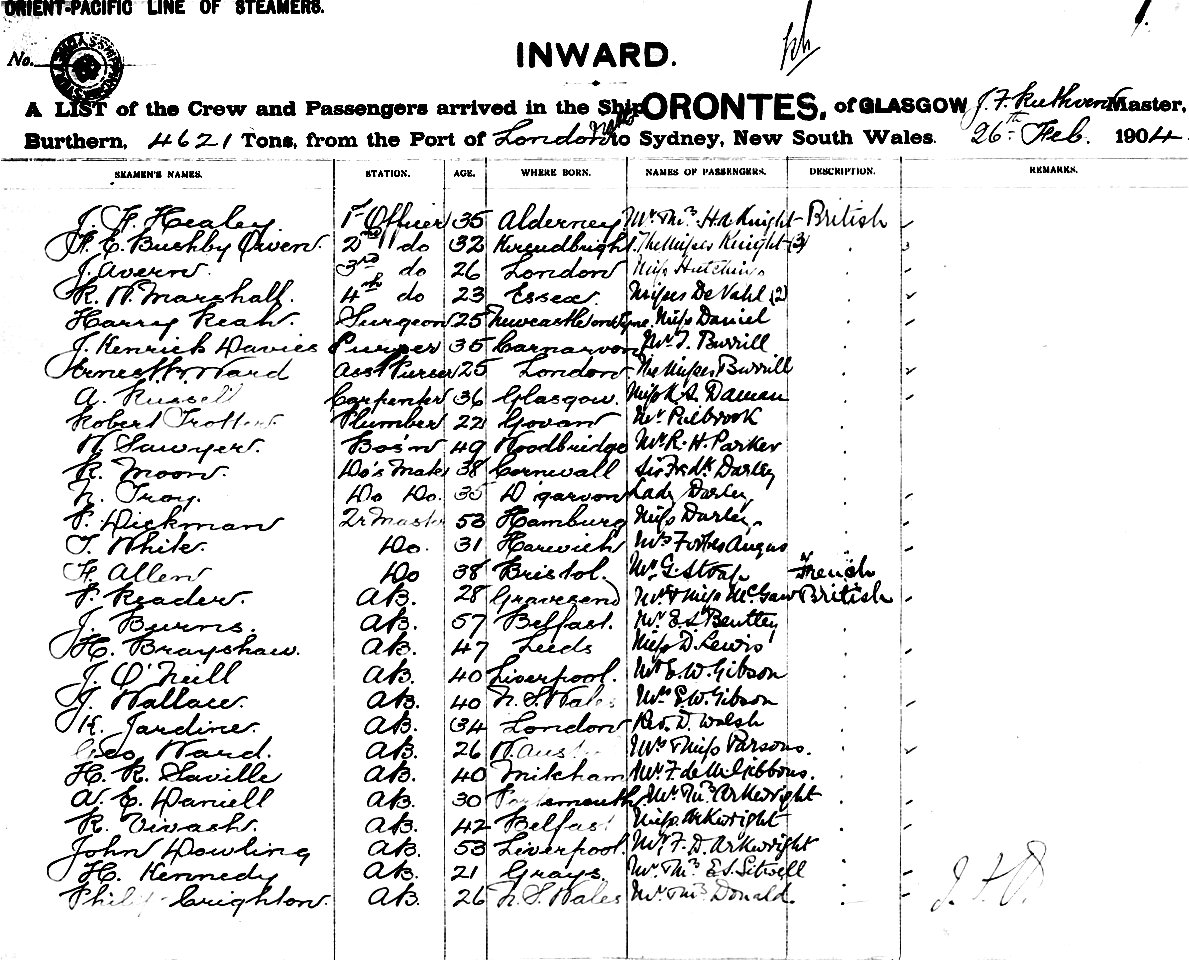 ORIENT-PACIFIC LINE OF STEAMERS.
No.
INWARD.
A LIST of the Crew and Passengers arrived in the Ship ORONTES, of GLASGOW J. F. Ruthven Master,
Burthern, 4621 Tons, from the Port of London to Sydney, New South Wales. 26th Feb. 1904
SEAMEN'S NAMES. STATION. AGE. WHERE BORN. NAMES OF PASSENGERS. DESCRIPTION. REMARKS.
J. F. Healey. 1st Officer 35 Alderney Mr & Mrs H. A. Knight British
F. E. Bushby Owen 2nd do 32 Kircudbright The Misses Knight (3)
J. Avern. 3rd do 26 London Miss Hutchins
R. N. Marshall. 4th do 23 Essex. Misses De Vahl (2)
Harry Keah. Surgeon 25 Newcastle on Tyne. Miss Daniel
J. Kenrick Davies Purser 35 Carnarvon Mr T. Burrill
Ernest W. Ward Asst Purser 25 London The Misses Burrill
A. Russell Carpenter 36 Glasgow. Miss K. A. Daman
Robert Trotter Plumber 22 Govan Mr Pulbrook
W. Sawyer. Bos'n 49 Woodbridge Mr R. H. Parker
R. Moon. Do's Mate 38 Cornwall Sir Fredk Darley
N. Troy. Do Do. 35 D'garvon Lady Darley
P. Dickman 2r Mastr 53 Hamburg Miss Darley.
T. White. Do. 31 Harwich Mrs Forbes Angus
F. Allen Do 38 Bristol. Mr G. French
P. Reader. AB. 28 Gravesend Mr & Miss McGaw British
J. Burns. AB. 57 Belfast. Mr E. L. Bentley
H. Brayshaw. AB. 47 Leeds Miss D. Lewis
J. O'Neill AB. 40 Liverpool. Mr E. W. Gibson
J. Wallace. AB. 40 N. S. Wales Mrs E. W. Gibson
K. Jardine. AB. 34 London Rev. D. Walsh
Geo Ward. AB. 26 W. Aust Mrs & Miss Parsons.
H. R. Saville AB. 40 Mitcham Mr F. de M. Gibbons.
A. E. Daniell AB. 30 Portsmouth Mr & Mrs Arkwright
R. Vivash. AB. 42 Belfast Miss Arkwright
John Dowling AB. 53 Liverpool. Mr F. D. Arkwright
H. Kennedy AB. 21 Grays. Mr & Mrs E. S. Sitwell
Philip Crighton. AB. 26 N. S. Wales Mr & Mrs Donald.